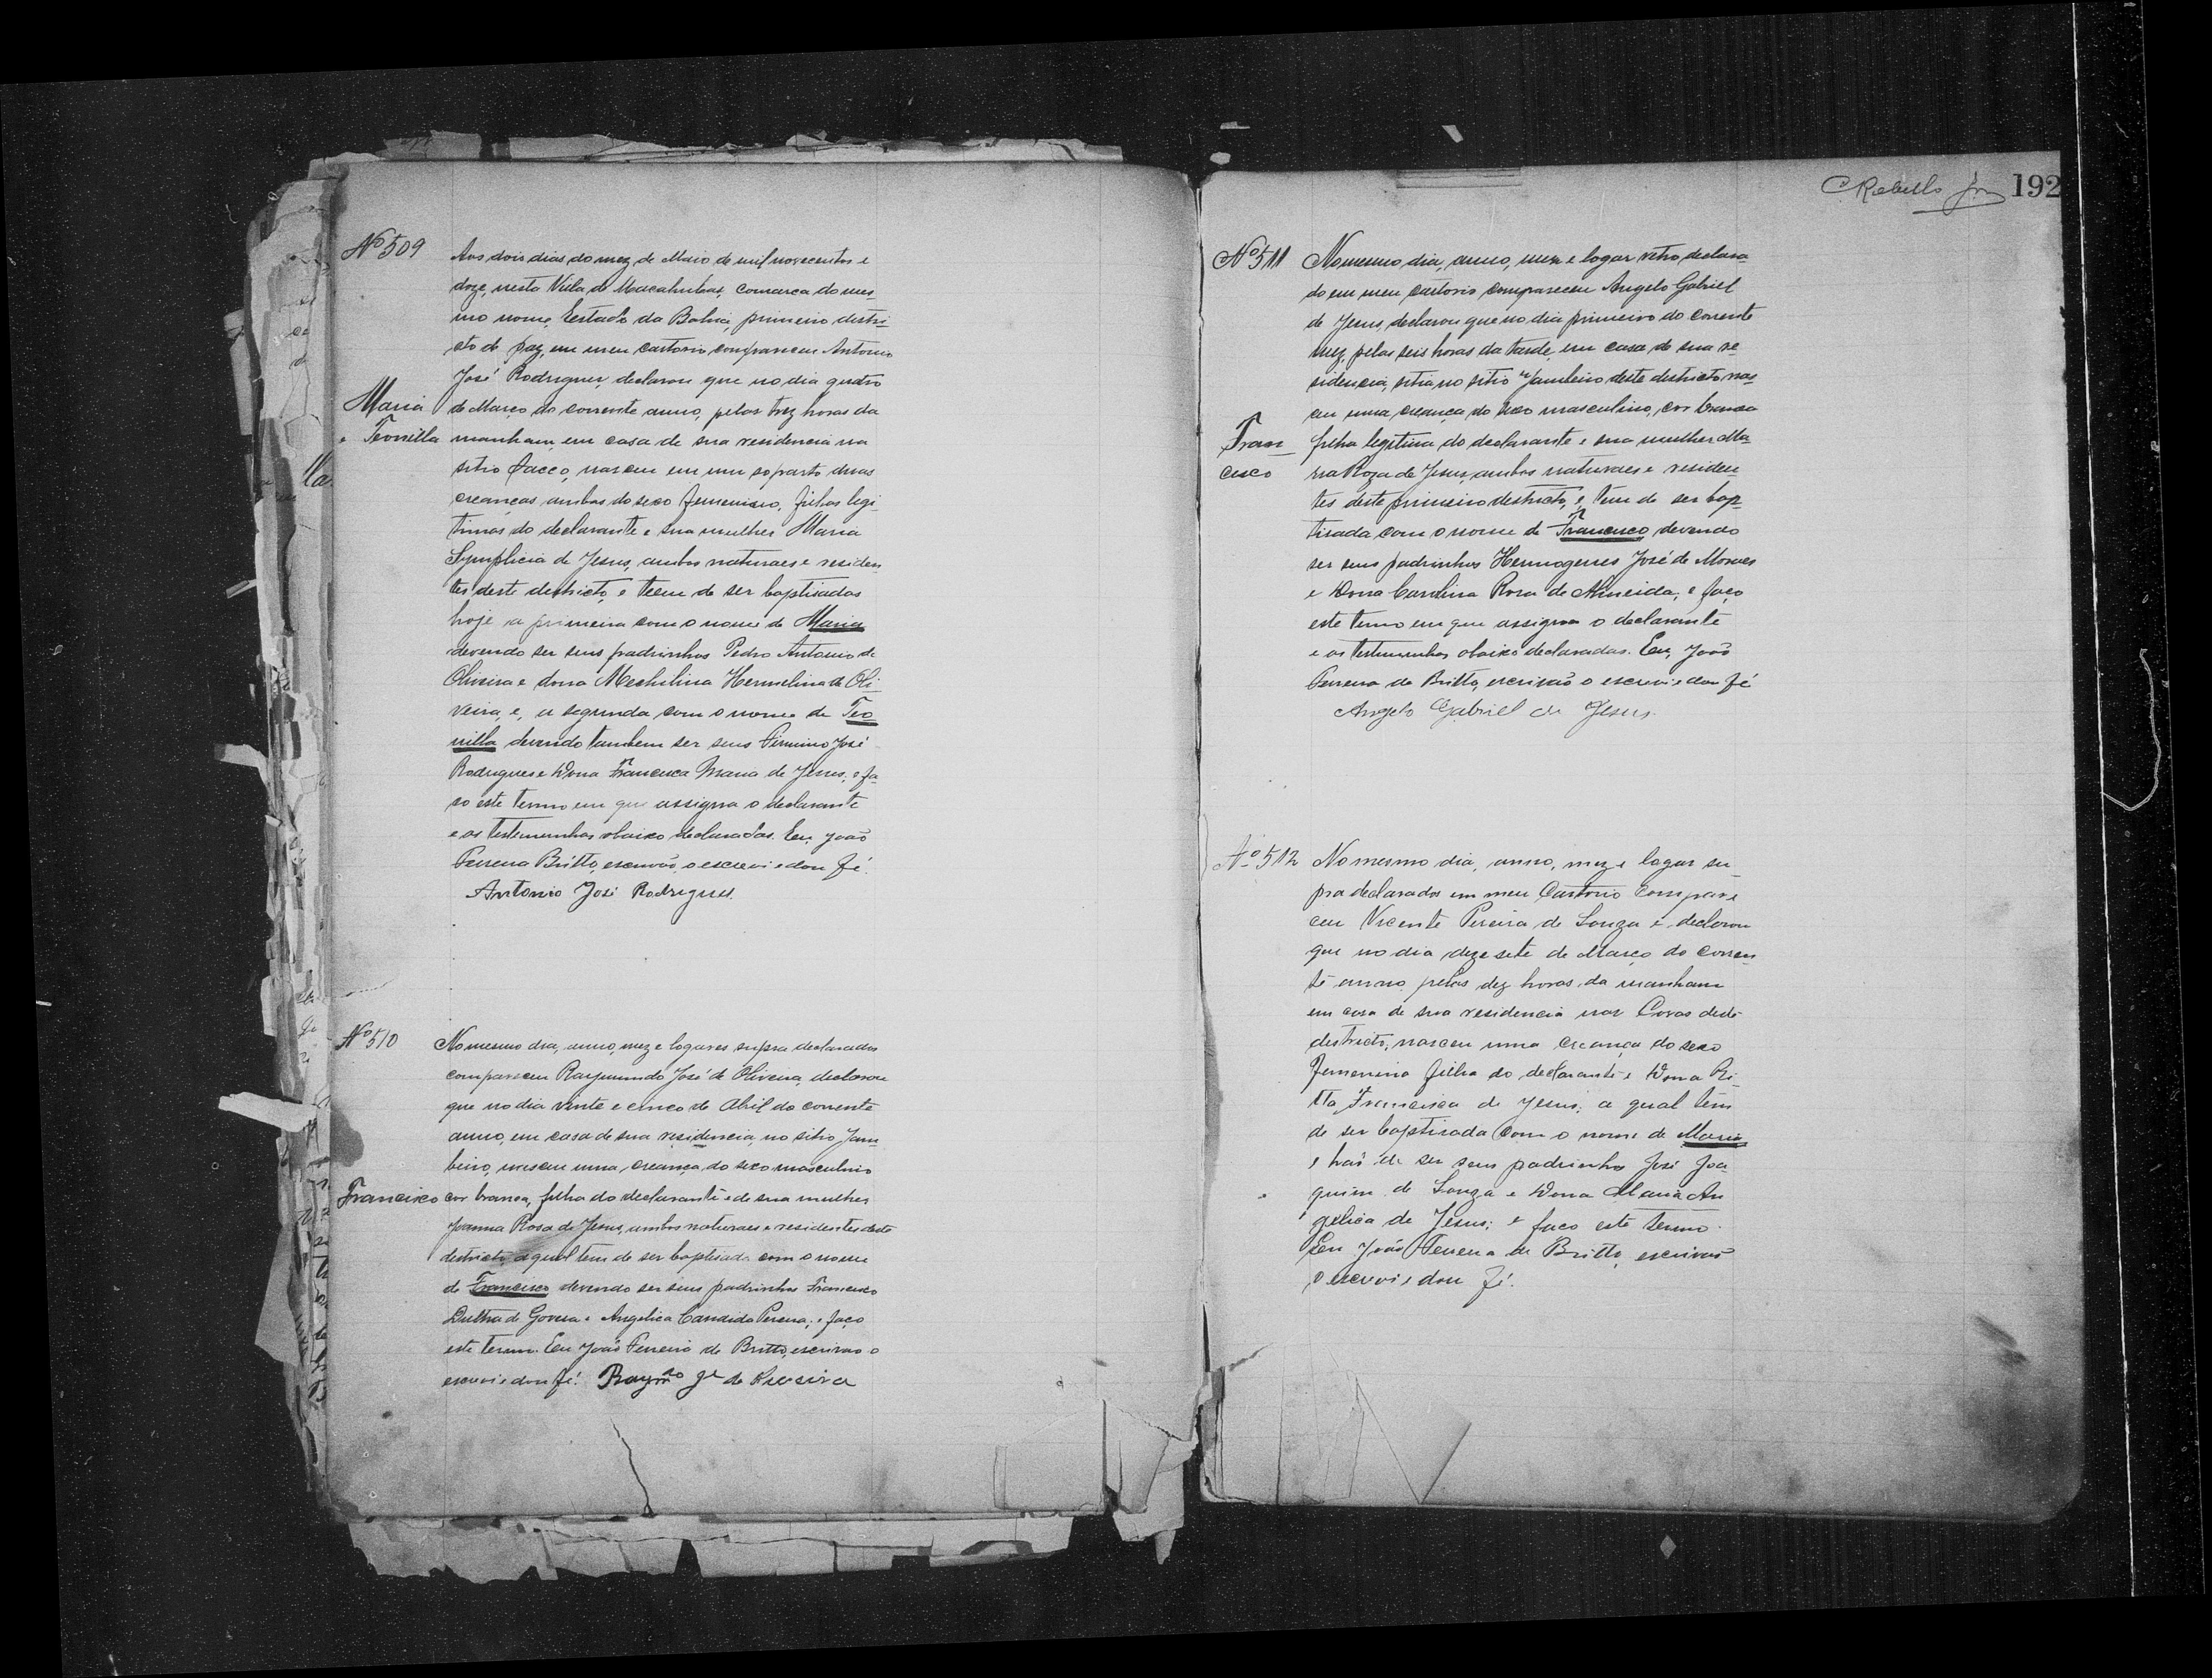 Nº 509
Aos dois dias do mez de Maio de mil novecentos e
doze, nesta Villa de Macahubas, comarca do mes-
mo nome, Estado da Bahia, primeiro distri-
cto de paz, em meu cartorio compareceu Antonio
José Rodrigues, declarou que no dia quatro
Maria
e Teonilla
de Março do corrente anno, pelas trez horas da
manham, em casa de sua residencia na
sitio nasceu em um só parto duas
creanças ambas do sexo femenino, filhas legi-
timas do declarante e sua mulher Maria
Symplicia de Jesus, ambos naturaes e residen-
tes deste destricto, e teem de ser baptisadas
hoje a primeira com o nome de Maria
devendo ser seus padrinhos Pedro Antonio de
Oliveira e dona Hermelina de Oli-
veira, e, a segunda com o nome de Teo
nilla devendo tambem ser seus Firmino José
Rodrigues e Dona Francisca Maria de Jesus, e fa-
so este termo em que assigna o declarante
e as testemunhas abaixo declaradas. Eu, João
Ferreira Britto, escrivão, o escrevi e dou fé.
Antonio José Rodrigues.
Nº 510
No mesmo dia, anno, mez e logares supra declarados
compareceu Raymundo José de Oliveira, declarou
que no dia vinte e cinco de Abril do corrente
anno, em casa de sua residencia, no sitio Jam
beiro, nasceu uma creança do sexo masculino
Francisco
cor branca, filha do declarante e de sua mulher
Joanna Rosa de Jesus, ambos naturaes e residentes deste
destricto, a qual tem de ser baptisada com o nome
de Francisco devendo ser seus padrinhos Francisco
Dultra de e Angelica Candida Pereira; e faço
este termo. Eu João Ferreira de Britto, escrivão o
escrevi e dou fé. Raymdo Je de
C Rabello Jor 192
Nº 511
No mesmo dia, anno, mez e logar retro declara
do em meu cartorio compareceu Angelo Gabriel
de Jesus, declarou que no dia primeiro do corrente
mez, pelas seis horas da tarde, em casa de sua re-
sidencia, sitia no sitio Jambeiro deste destricto nas
ceu uma creança do sexo masculino, cor branca
Fran
cisco
filha legitima do declarante e sua mulher Ma-
ria Roza de Jesus, ambos naturaes e residen
tes deste primeiro destricto, e tem de ser bap-
tisada com o nome de Francisco, devendo
ser seus padrinhos Hermogenes José de Moraes
e Dona Carolina Rosa de Almeida, e faço
este termo em que assigna o declarante
e as testemunhas abaixo declaradas. Eu, João
Ferreira de Britto, escrivão o escrevi e dou fé
Angelo Gabriel de Jesus.
Nº 512
No mesmo dia, anno, mez e logar su-
pra declarados em meu Cartorio compare
ceu Vicente Pereira de Souza e declarou
que no dia dezesete de Março do corren
te anno pelas dez horas da manham
em casa de sua residencia nas Covas deste
destricto, nasceu uma creança do sexo
femenino filha do declarante e Dona Ri-
tta Francisca de Jesus; a qual tem
de ser baptisada com o nome de Maria
e hão de ser seus padrinhos José Joa-
quim de Souza e Dona Maria An
gelica de Jesus; e faco este termo.
Eu João Ferreira de Britto, escrivão
o escrevi e dou fé.